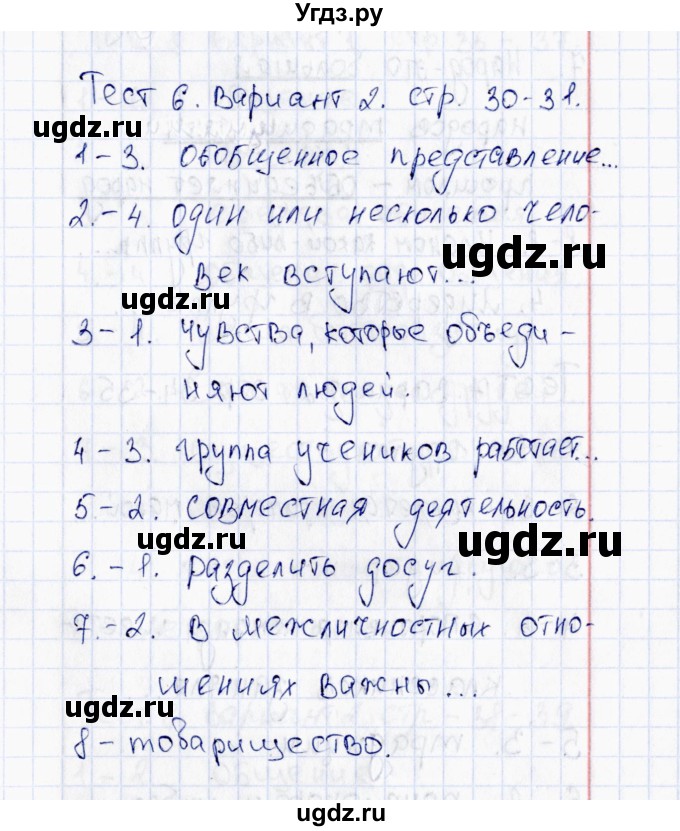 Угдз.ру
Тест 6. Вариант 2. стр. 30-31.
ugdz.ru ugdz.ru
1-3. Обобщенное представление...
2.-4. один или несколько чело-
ugdz.ru
век вступают...
ugdz.ru
3-1. Чувства, которые объеди-
няют людей.
4-3. группа учеников работает...
5-2. совместная деятельность.
ugdz.ru ugdz.ru
6.-1. разделить досуг.
7.-2. в межличностных отно-
шениях важны...
ugdz.ru
8-товарищество.
ugdz.ru